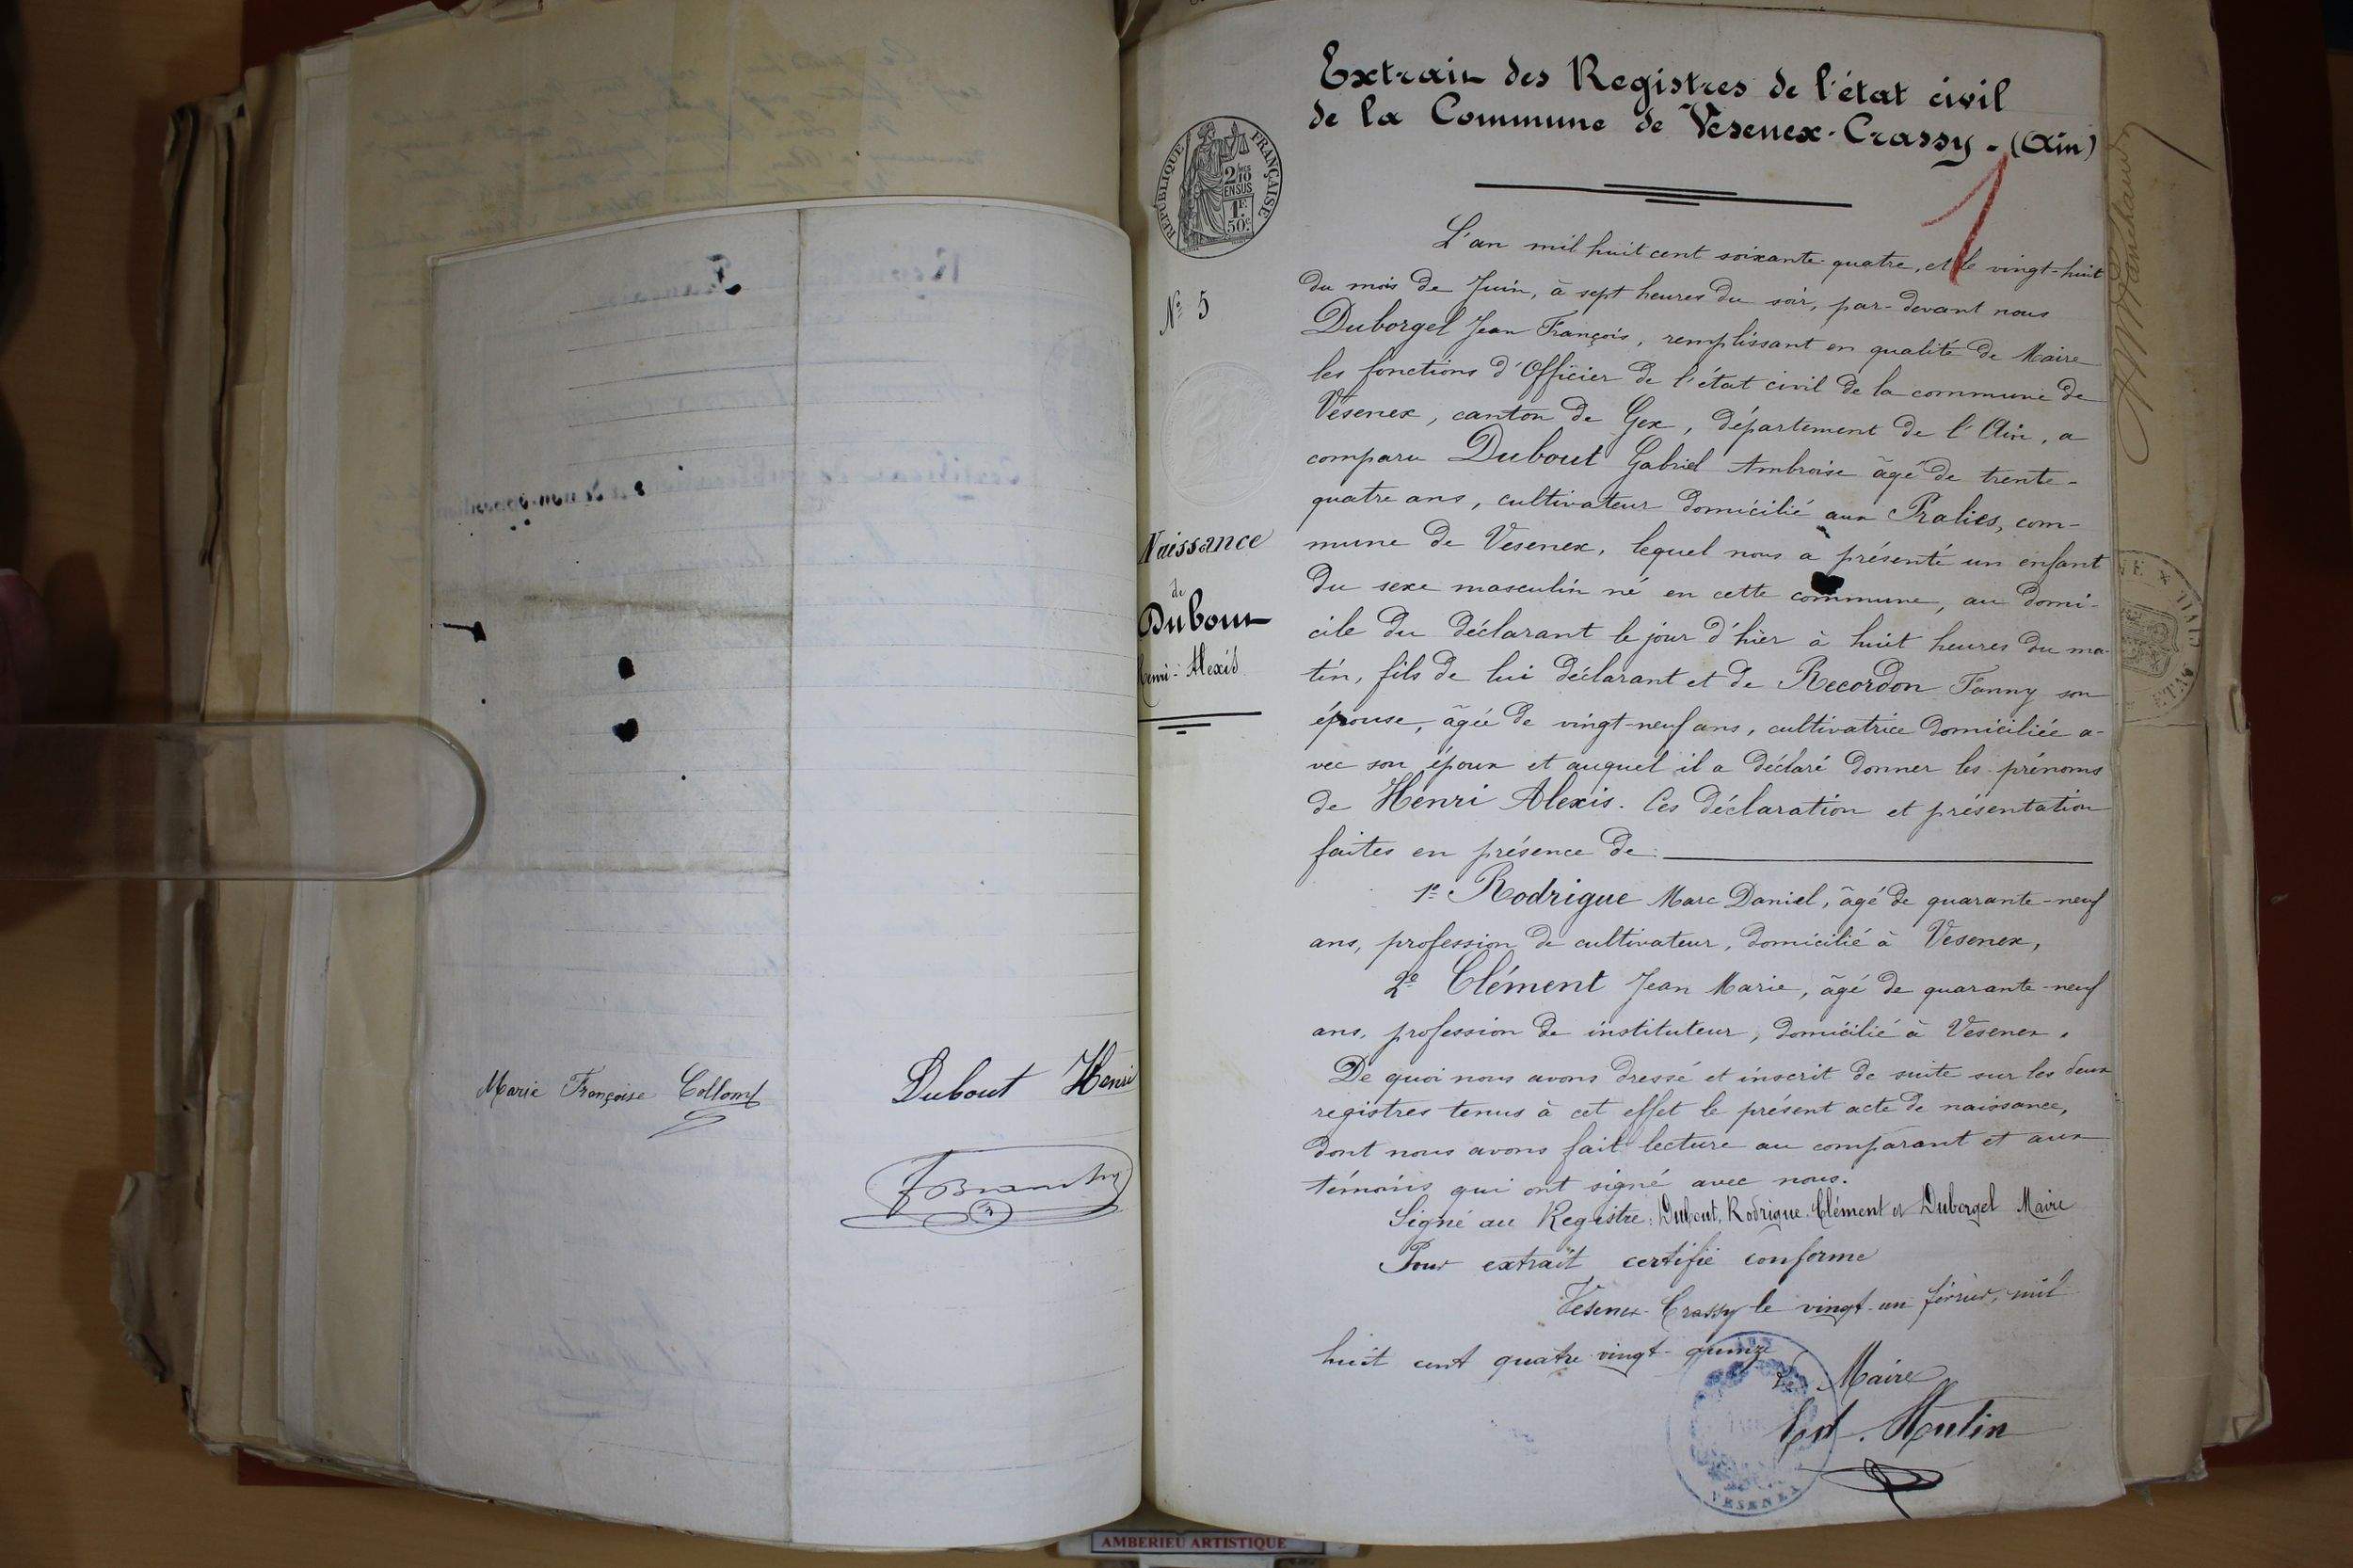 Marie Françoise Collomb
Dubout Henri
RÉPUBLIQUE FRANÇAISE
2/10
EN SUS
1F
50c
Nº 5
Naissance
de
Dubout
Henri-Alexis
Extrait des Registres de l'état civil
de la Commune de Vesenex-Crassy. (Ain)
1
L'an mil huit cent soixante-quatre, et le vingt-huit
du mois de Juin, à sept heures du soir, par-devant nous
Duborgel Jean François, remplissant en qualité de Maire
les fonctions d'Officier de l'état civil de la commune de
Vesenex, canton de Gex, département de l'Ain, a
comparu Dubout Gabriel Ambroise âgé de trente-
quatre ans, cultivateur domicilié aux Pralies, com-
mune de Vesenex, lequel nous a présenté un enfant
du sexe masculin né en cette commune, au domi-
cile du déclarant le jour d'hier à huit heures du ma-
tin, fils de lui déclarant et de Recordon Fanny son
épouse, âgée de vingt-neuf ans, cultivatrice domiciliée a-
vec son époux et auquel il a déclaré donner les prénoms
de Henri Alexis. Ces déclaration et présentation
faites en présence de:
1º Rodrigue Marc Daniel, âgé de quarante-neuf
ans, profession de cultivateur, domicilié à Vesenex,
2º Clément Jean Marie, âgé de quarante-neuf
ans, profession de instituteur, domicilié à Vesenex.
De quoi nous avons dressé et inscrit de suite sur les deux
registres tenus à cet effet le présent acte de naissance,
dont nous avons fait lecture au comparant et aux
témoins qui ont signé avec nous.
Signé au Registre: Dubout, Rodrigue, Clément et Duborgel Maire
Pour extrait certifié conforme
Vesenex-Crassy le vingt-un février, mil
huit cent quatre vingt-quinze
Le Maire
Hutin
VESENEX
AMBERIEU ARTISTIQUE